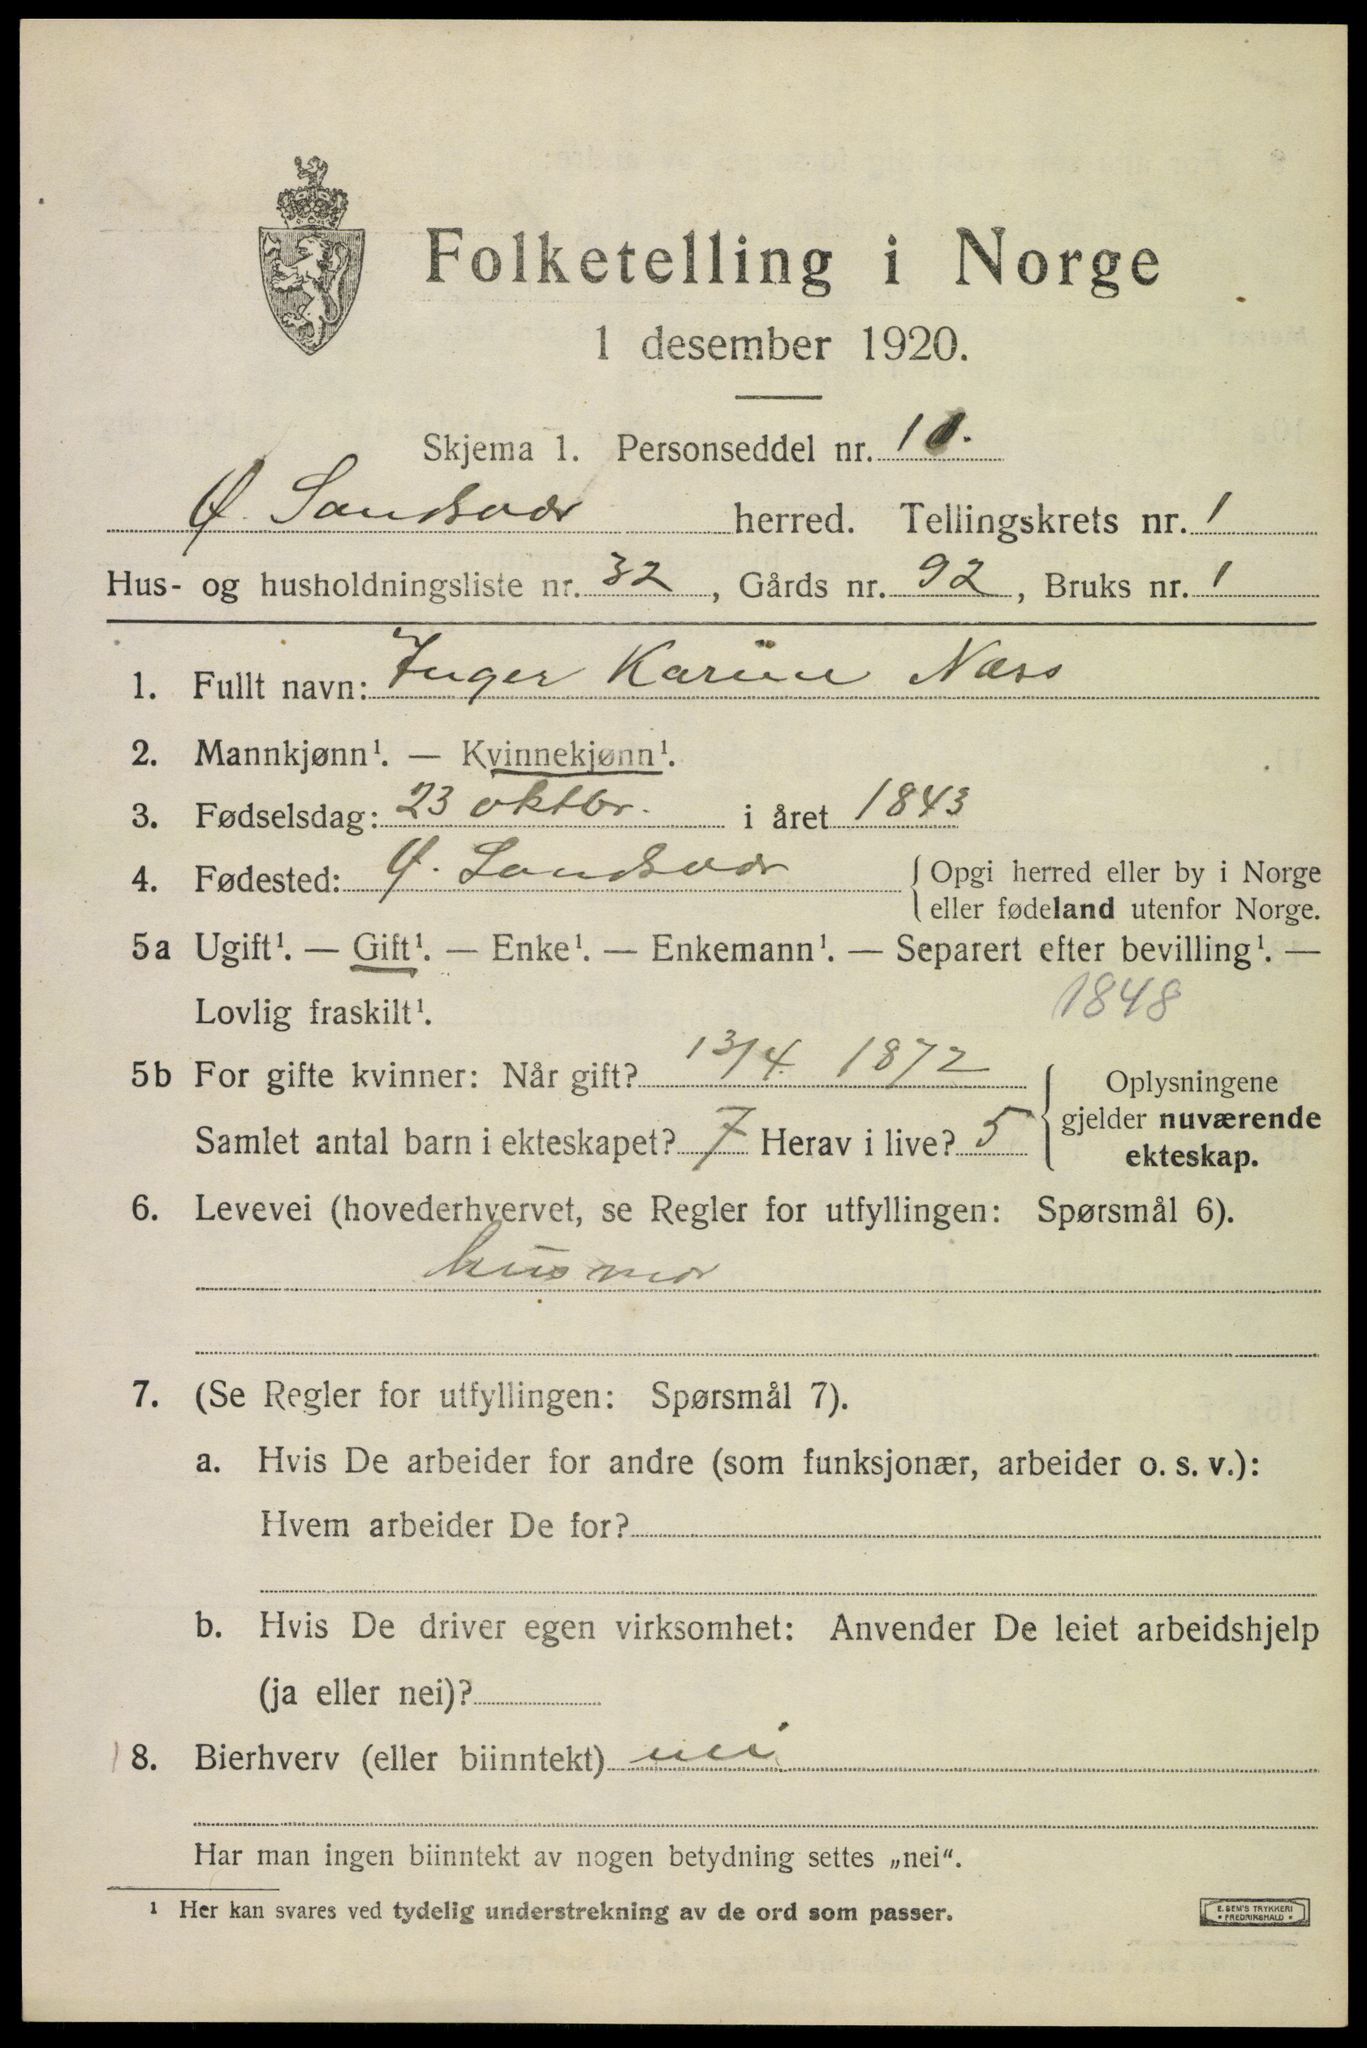 Folketelling i Norge
1 desember 1920.
Skjema 1. Personseddel nr. 10.
Ø. Sandsvær herred. Tellingskrets nr. 1
Hus- og husholdningsliste nr. 32, Gårds nr. 92, Bruks nr. 1
1. Fullt navn: Inger Karine Næss
2. Mannkjønn¹. — Kvinnekjønn¹.
3. Fødselsdag: 23 oktbr. i året 1843
4. Fødested: Ø. Sandsvær { Opgi herred eller by i Norge
eller fødeland utenfor Norge.
5a Ugift¹. — Gift¹. — Enke¹. — Enkemann¹. — Separert efter bevilling¹. —
Lovlig fraskilt¹. 1848
5b For gifte kvinner: Når gift? 13/4 1872 { Oplysningene
Samlet antal barn i ekteskapet? 7 Herav i live? 5 gjelder nuværende
ekteskap.
6. Levevei (hovederhvervet, se Regler for utfyllingen: Spørsmål 6).
husmor
7. (Se Regler for utfyllingen: Spørsmål 7).
a. Hvis De arbeider for andre (som funksjonær, arbeider o. s. v.):
Hvem arbeider De for?
b. Hvis De driver egen virksomhet: Anvender De leiet arbeidshjelp
(ja eller nei)?
8. Bierhverv (eller biinntekt) nei
Har man ingen biinntekt av nogen betydning settes „nei“.
¹ Her kan svares ved tydelig understrekning av de ord som passer.
E. SEM'S TRYKKERI
• FREDRIKSHALD •